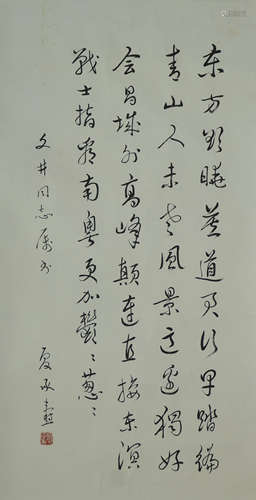 东方欲曉莫道君行早踏遍
青山人未老風景这边獨好
会昌城外高峰顛连直接东溟
戰士指看南粤更加鬱〻葱〻
文井同志属书
夏承焘